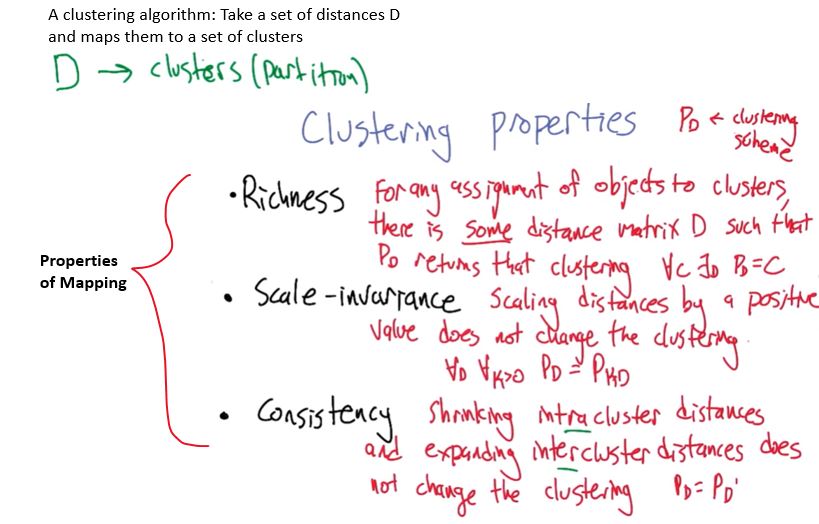 A clustering algorithm: Take a set of distances D
and maps them to a set of clusters
D → clusters (partition)
Clustering properties
P_D ← clustering
scheme
Properties
of Mapping
• Richness
For any assignment of objects to clusters,
there is some distance matrix D such that
P_D returns that clustering ∀C ∃D P_D = C
• Scale-invariance
Scaling distances by a positive
value does not change the clustering.
∀D ∀K>0 P_D = P_KD
• Consistency
Shrinking intracluster distances
and expanding intercluster distances does
not change the clustering P_D = P_D'